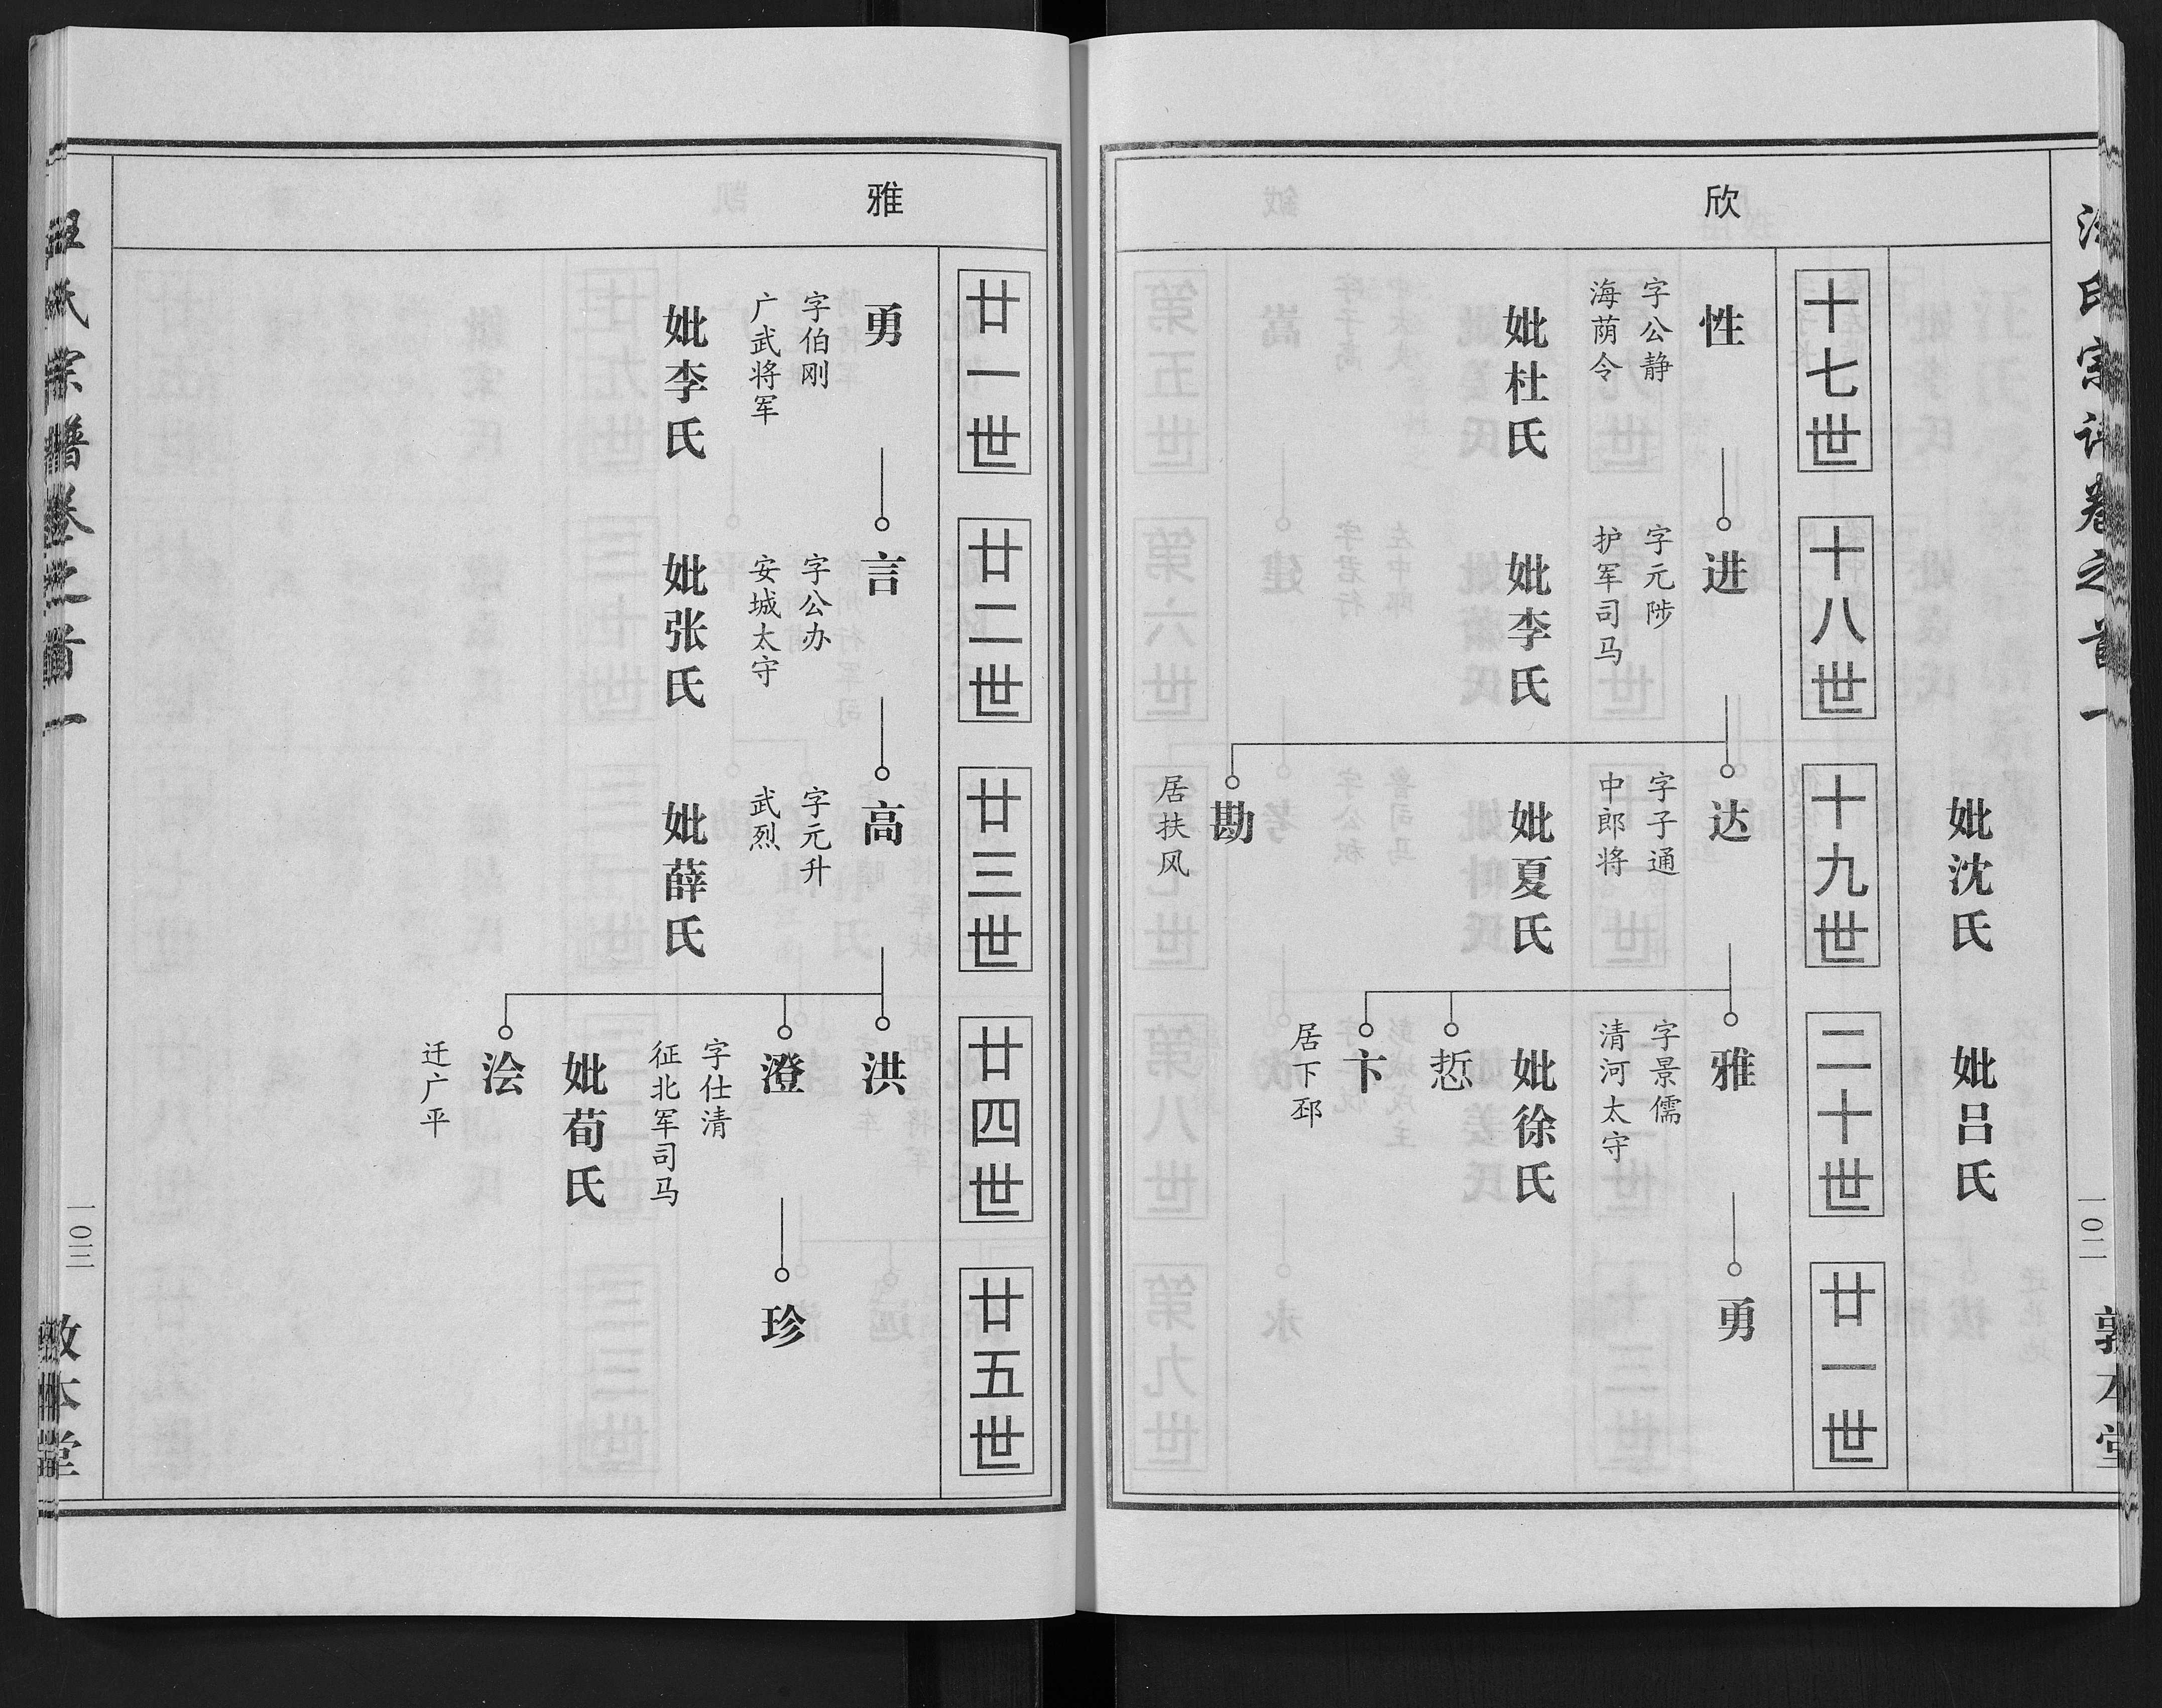 欣
妣沈氏
妣吕氏
十七世
十八世
十九世
二十世
廿一世
性
字公静
海荫令
妣杜氏
进
字元陟
护军司马
妣李氏
达
字子通
中郎将
妣夏氏
勘
居扶风
雅
字景儒
清河太守
妣徐氏
悊
卞
居下邳
勇
一〇二
雅
廿一世
廿二世
廿三世
廿四世
廿五世
勇
字伯刚
广武将军
妣李氏
言
字公办
安城太守
妣张氏
高
字元升
武烈
妣薛氏
洪
澄
字仕清
征北军司马
妣荀氏
浍
迁广平
珍
氏宗谱卷之首一
一〇三
本堂